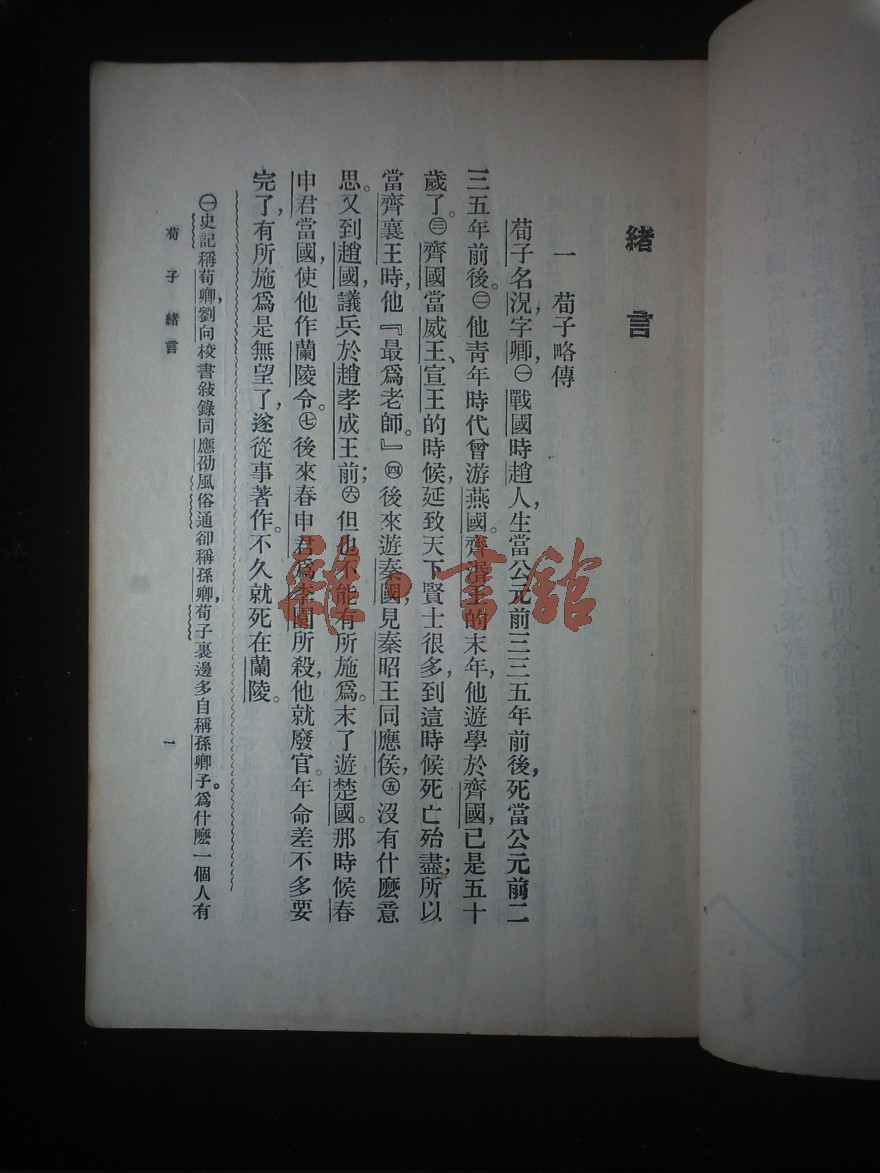 緒言
一 荀子略傳
荀子名況，字卿，㊀戰國時趙人，生當公元前三三五年前後，死當公元前二
三五年前後。㊁他青年時代曾游燕國。齊湣王的末年，他遊學於齊國，已是五十
歲了。㊂齊國當威王、宣王的時候，延致天下賢士很多，到這時候死亡殆盡；所以
當齊襄王時，他『最爲老師。』㊃後來遊秦國，見秦昭王同應侯，㊄沒有什麼意
思。又到趙國，議兵於趙孝成王前；㊅但也不能有所施爲。末了遊楚國。那時候春
申君當國，使他作蘭陵令。㊆後來春申君爲李園所殺，他就廢官。年命差不多要
完了，有所施爲是無望了，遂從事著作。不久就死在蘭陵。
㊀史記稱荀卿，劉向校書敍錄同應劭風俗通卻稱孫卿，荀子裏邊多自稱孫卿子。爲什麼一個人有
荀子緒言
一
雜書館